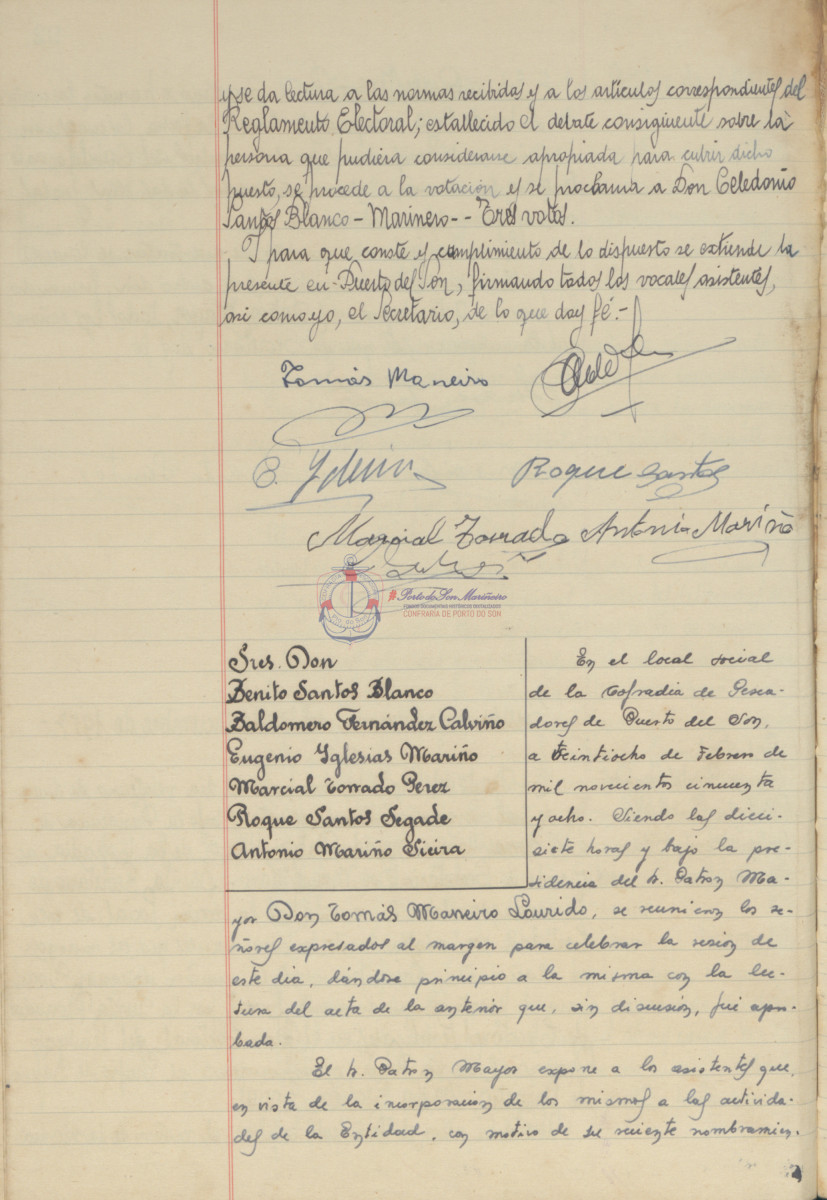 y se da lectura a las normas recibidas y a los artículos correspondientes del
Reglamento Electoral; establecido el debate consiguiente sobre la
persona que pudiera considerarse apropiada para cubrir dicho
puesto, se procede a la votación y se proclama a Don Celedonio
Santos Blanco - Marinero -- Tres votos.
Y para que conste y cumplimiento de lo dispuesto se extiende la
presente en Puerto del Son, firmando todos los vocales asistentes,
asi como yo, el Secretario, de lo que doy fé.-
Tomás Maneiro
Roque Santos
Marcial Torrado Antonio Mariño
#PortodoSonMariñeiro
CONFRARÍA DE PORTO DO SON
Sres. Don
Benito Santos Blanco
Baldomero Fernández Calviño
Eugenio Yglesias Mariño
Marcial Torrado Perez
Roque Santos Segade
Antonio Mariño Sieira
En el local social
de la Cofradia de Pesca-
dores de Puerto del Son,
a veintiocho de Febrero de
mil novecientos cincuenta
y ocho. Siendo las dieci-
siete horas y bajo la pre-
sidencia del Sr. Patron Ma-
yor Don Tomás Maneiro Lourido, se reunieron los se-
ñores expresados al margen para celebrar la sesión de
este dia, dándose principio a la misma con la lec-
tura del acta de la anterior que, sin discusión, fué apro-
bada.
El Sr. Patron Mayor expone a los asistentes que,
en vista de la incorporación de los mismos a las activida-
des de la Entidad, con motivo de su reciente nombramien-